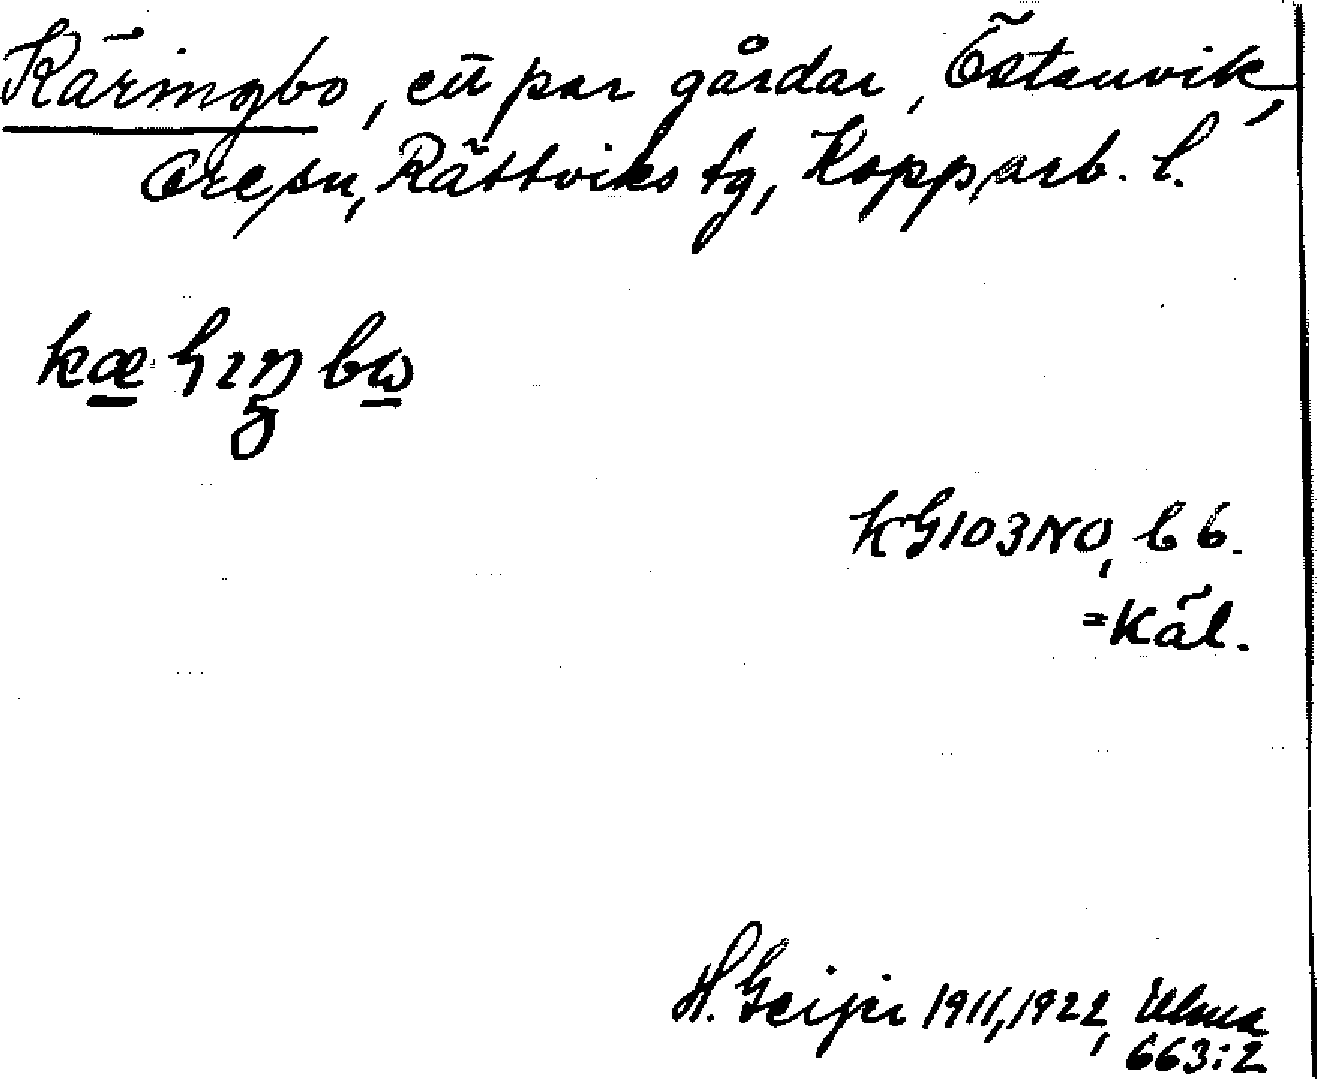 Käringbo, ett par gårdar, Östanvik,
Ore sn, Rättviks tg, Kopparb. l.
KG103NO, b 6.
=Käl.
H. Geijer 1911, 1922, Ulma
663:2